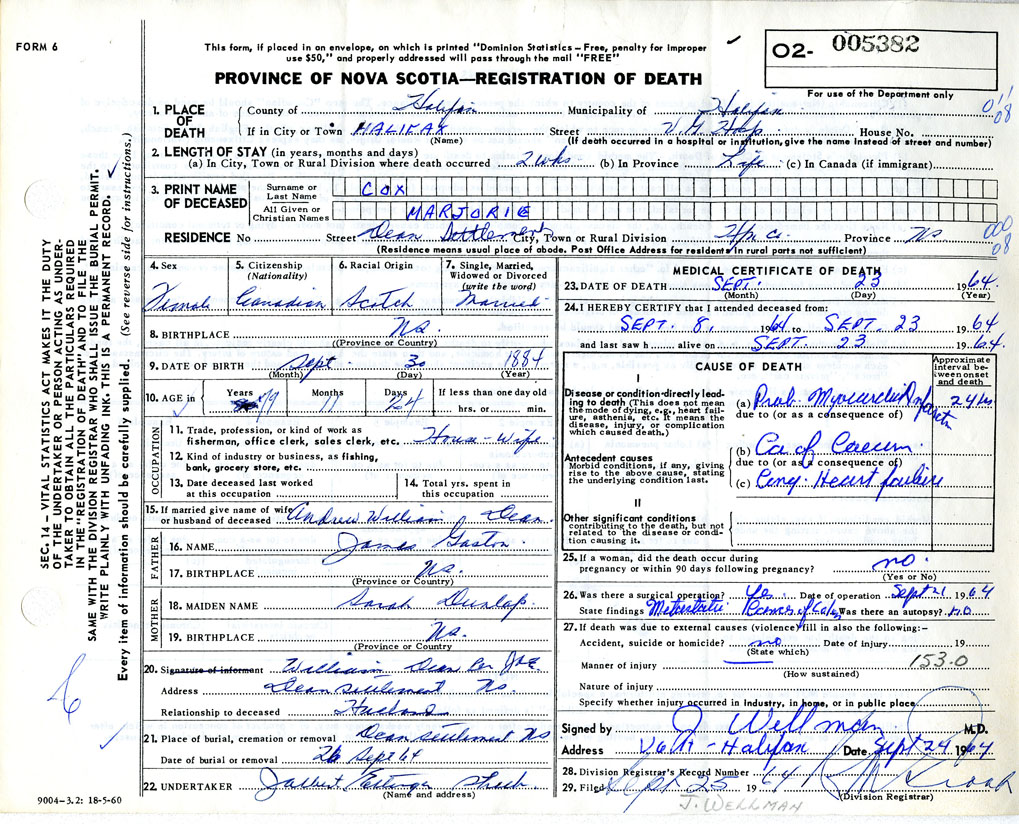 FORM 6
This form, if placed in an envelope, on which is printed "Dominion Statistics – Free, penalty for improper
use $50," and properly addressed will pass through the mail "FREE"
PROVINCE OF NOVA SCOTIA—REGISTRATION OF DEATH
O2- 005382
For use of the Department only
011
08
1. PLACE OF DEATH
County of Halifax Municipality of Halifax
If in City or Town HALIFAX Street V. G. Hosp House No.
(Name) (If death occurred in a hospital or institution, give the name instead of street and number)
2. LENGTH OF STAY (in years, months and days)
(a) In City, Town or Rural Division where death occurred 2 wks (b) In Province Life (c) In Canada (if immigrant)
3. PRINT NAME OF DECEASED
Surname or Last Name COX
All Given or Christian Names MARJORIE
RESIDENCE No. Street Dean Settlement City, Town or Rural Division Hfx Co. Province NS
(Residence means usual place of abode. Post Office Address for residents in rural parts not sufficient)
000
08
4. Sex Female
5. Citizenship (Nationality) Canadian
6. Racial Origin Scotch
7. Single, Married, Widowed or Divorced (write the word) Married
8. BIRTHPLACE Ns.
(Province or Country)
9. DATE OF BIRTH Sept 30 1884
(Month) (Day) (Year)
10. AGE in Years 79 Months 11 Days 24 If less than one day old
hrs. or min.
OCCUPATION
11. Trade, profession, or kind of work as
fisherman, office clerk, sales clerk, etc. House-Wife
12. Kind of industry or business, as fishing,
bank, grocery store, etc.
13. Date deceased last worked
at this occupation
14. Total yrs. spent in
this occupation
15. If married give name of wife
or husband of deceased Andrew William Dean
FATHER
16. NAME James Gaston
17. BIRTHPLACE Ns.
(Province or Country)
MOTHER
18. MAIDEN NAME Sarah Dunlap
19. BIRTHPLACE Ns.
(Province or Country
20. Signature of informant William Dean Per
Address Dean settlement Ns.
Relationship to deceased Husband
21. Place of burial, cremation or removal Dean settlement NS
Date of burial or removal 26 Sept 64
22. UNDERTAKER
(Name and address)
9004–3.2: 18-5-60
MEDICAL CERTIFICATE OF DEATH
23. DATE OF DEATH SEPT. 23 1964.
(Month) (Day) (Year)
24. I HEREBY CERTIFY that I attended deceased from:
SEPT. 8, 1964 to SEPT. 23 1964
and last saw h alive on SEPT. 23 1964.
CAUSE OF DEATH
Approximate interval between onset and death
I
Disease or condition directly leading to death (This does not mean the mode of dying, e.g., heart failure, asthenia, etc. It means the disease, injury, or complication which caused death.)
(a) Prob. Myocardial Infarct 24 hr
due to (or as a consequence of)
Antecedent causes
Morbid conditions, if any, giving rise to the above cause, stating the underlying condition last.
(b) Ca of Caecum
due to (or as a consequence of)
(c) Cong. Heart failure
II
Other significant conditions
contributing to the death, but not related to the disease or condition causing it.
25. If a woman, did the death occur during
pregnancy or within 90 days following pregnancy? no.
(Yes or No)
26. Was there a surgical operation? Yes. Date of operation Sept 21 1964
State findings Metastatic Was there an autopsy? no
27. If death was due to external causes (violence) fill in also the following:–
Accident, suicide or homicide? no Date of injury 19
(State which)
Manner of injury 153.0
(How sustained)
Nature of injury
Specify whether injury occurred in Industry, in home, or in public place
Signed by J Wellman M.D.
Address V G H - Halifax Date Sept 24 1964
28. Division Registrar's Record Number
29. Filed Sept 25 1964
(Division Registrar)
J. WELLMAN
SEC. 14 – VITAL STATISTICS ACT MAKES IT THE DUTY
OF THE UNDERTAKER OR PERSON ACTING AS UNDER-
TAKER TO OBTAIN ALL THE PARTICULARS REQUIRED
IN THE "REGISTRATION OF DEATH" AND TO FILE THE
SAME WITH THE DIVISION REGISTRAR WHO SHALL ISSUE THE BURIAL PERMIT.
WRITE PLAINLY WITH UNFADING INK. THIS IS A PERMANENT RECORD.
Every item of information should be carefully supplied. (See reverse side for instructions.)